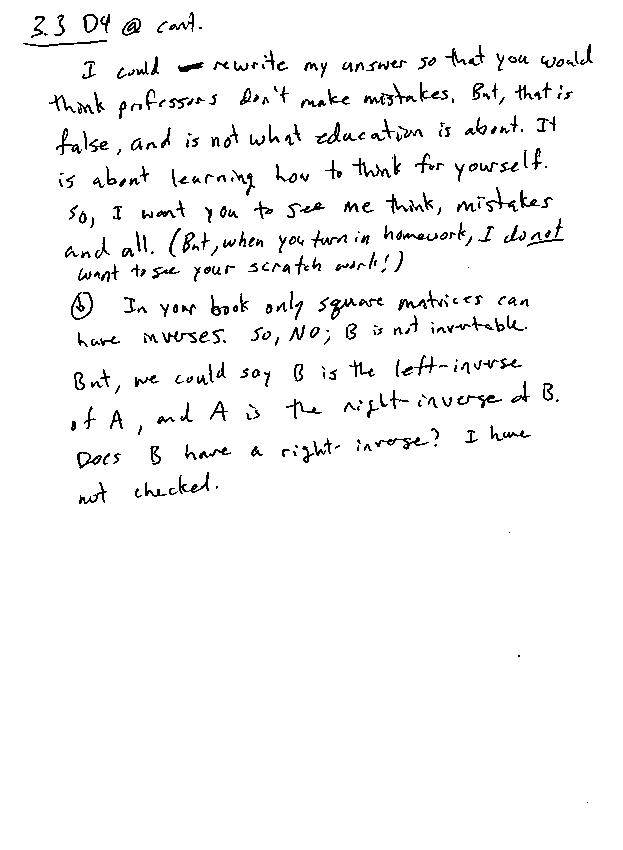 3.3 D4 ⓐ cont.
I could rewrite my answer so that you would
think professors don't make mistakes. But, that is
false, and is not what education is about. It
is about learning how to think for yourself.
So, I want you to see me think, mistakes
and all. (But, when you turn in homework, I do not
want to see your scratch work!)
ⓑ In your book only square matrices can
have inverses. So, NO; B is not invertable.
But, we could say B is the left-inverse
of A, and A is the right-inverse of B.
Does B have a right-inverse? I have
not checked.